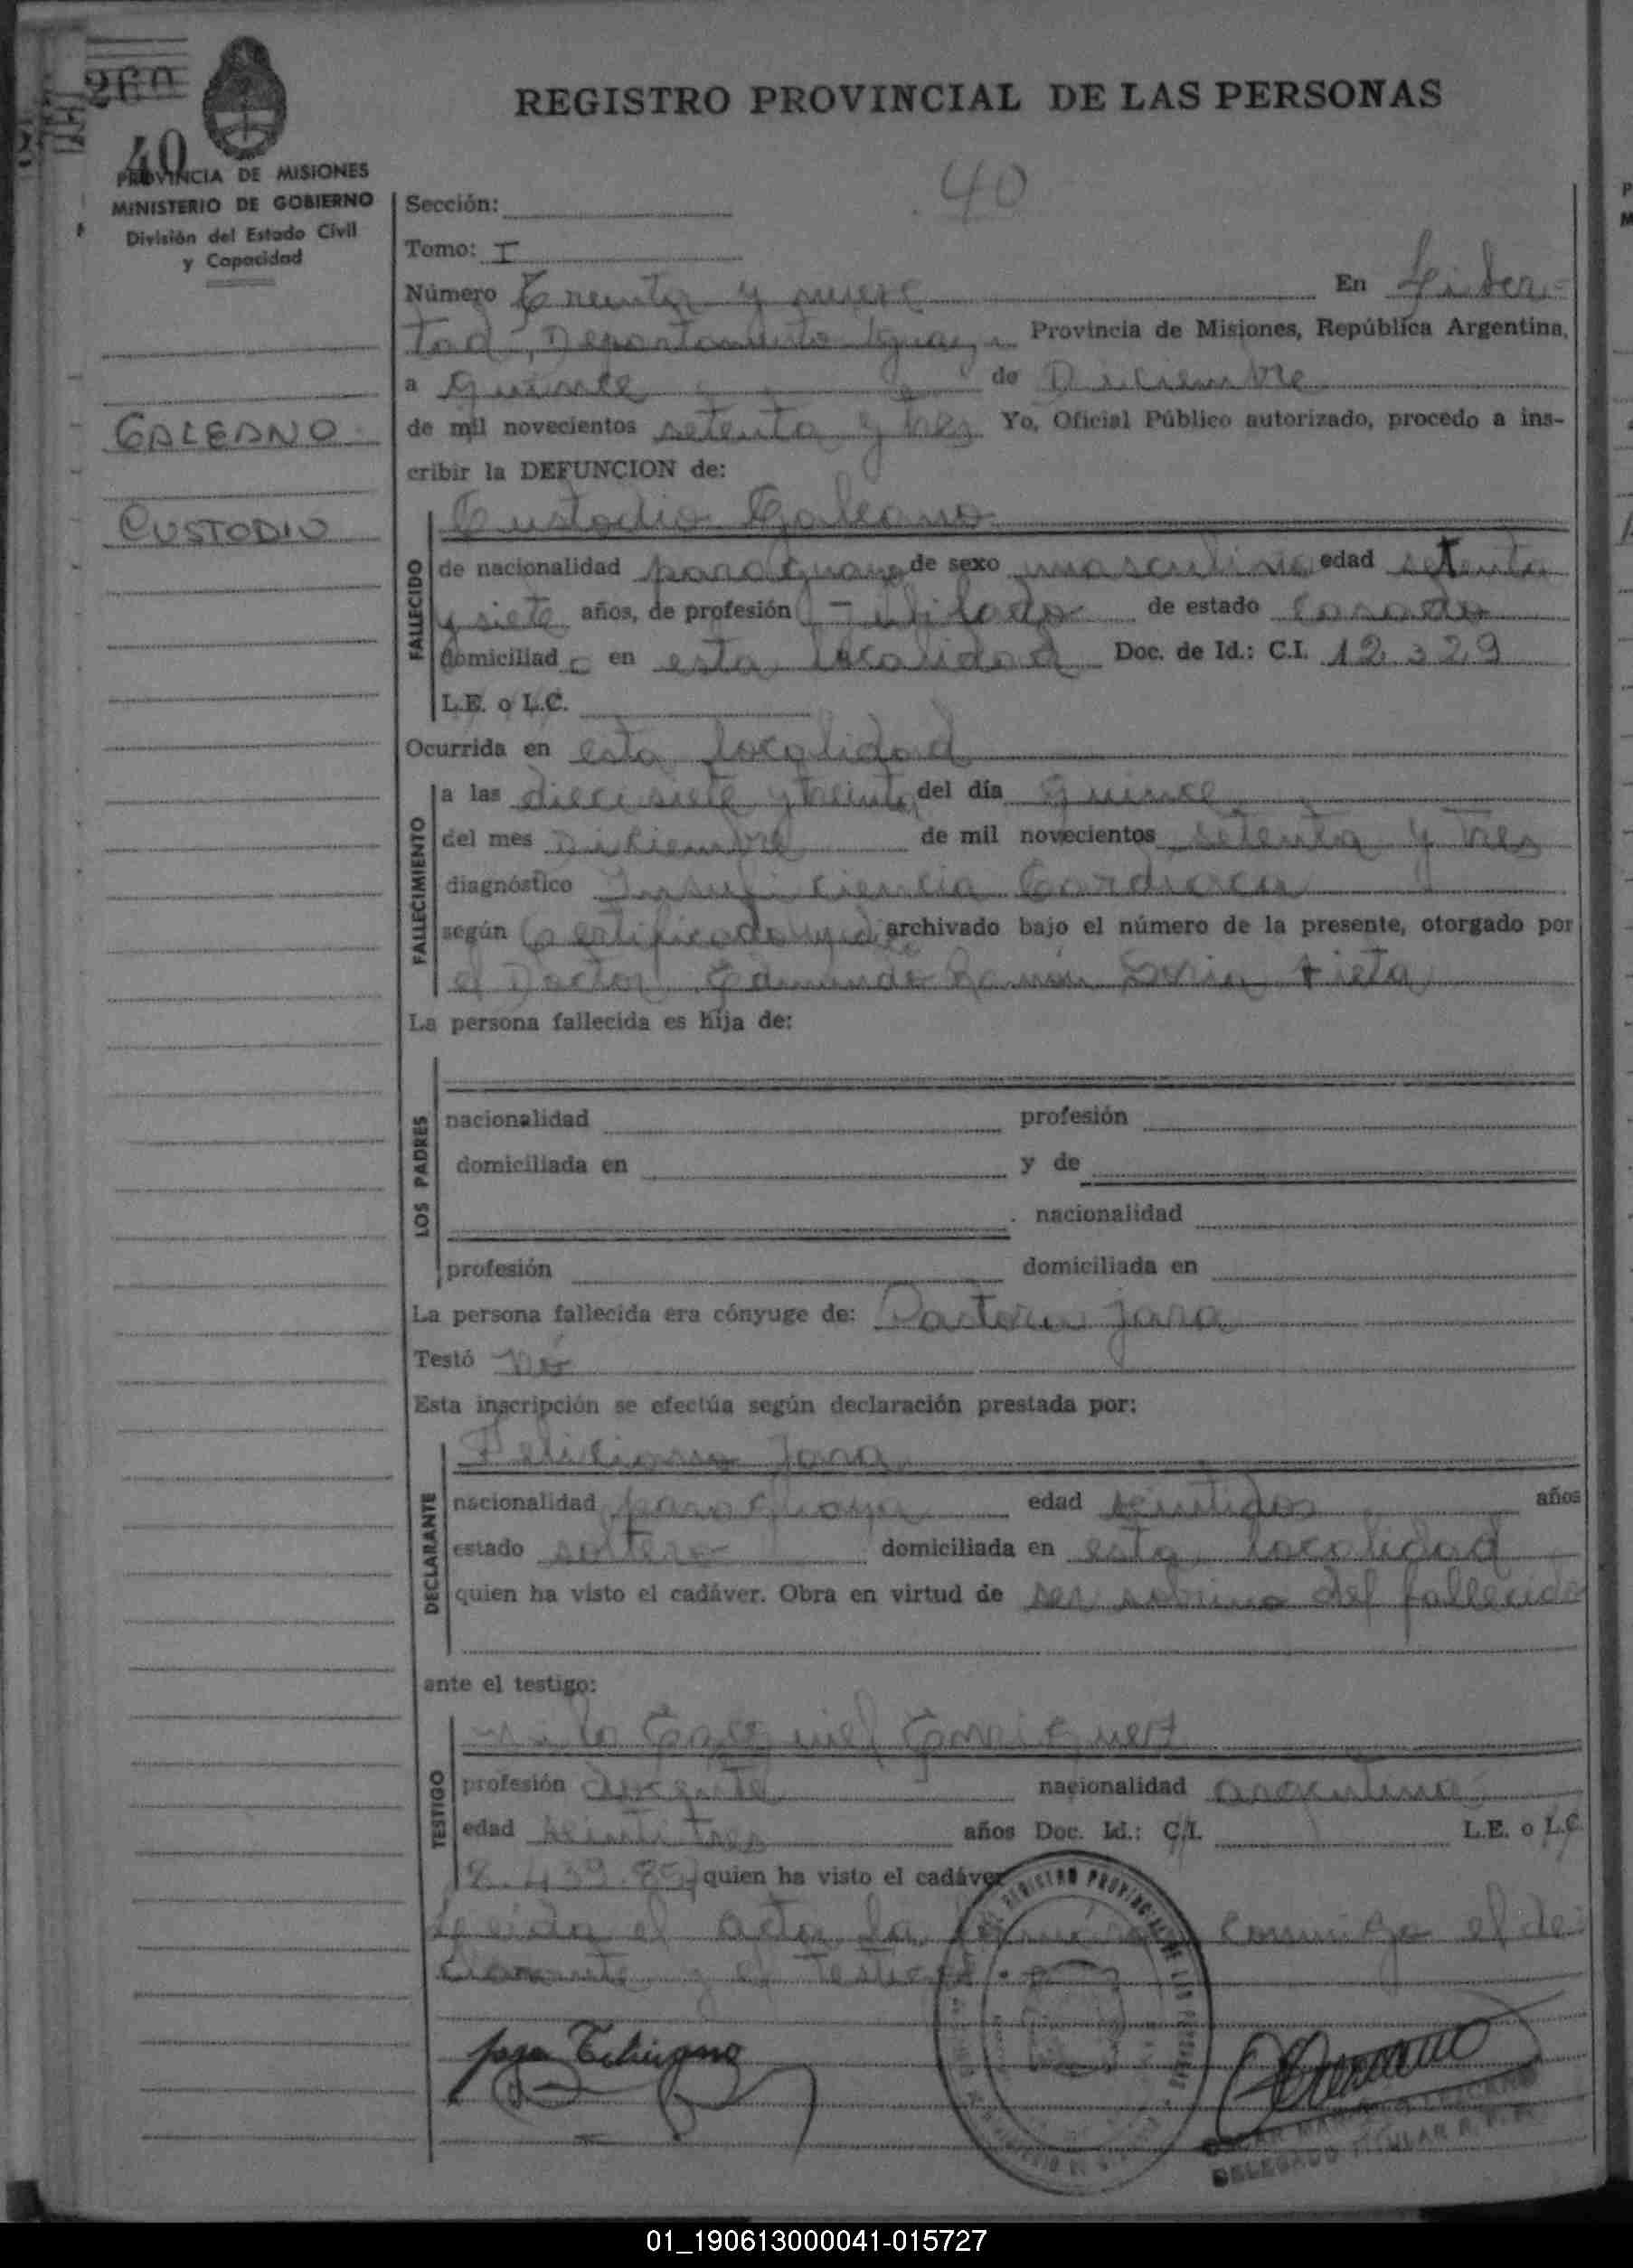 260
40
PROVINCIA DE MISIONES
MINISTERIO DE GOBIERNO
División del Estado Civil
y Capacidad
GALEANO
CUSTODIO
REGISTRO PROVINCIAL DE LAS PERSONAS
40
Sección:
Tomo: I
Número treinta y nueve En Liber-
tad, Departamento Iguazú Provincia de Misiones, República Argentina,
a quince de Diciembre
de mil novecientos setenta y tres Yo, Oficial Público autorizado, procedo a ins-
cribir la DEFUNCION de:
Custodio Galeano
FALLECIDO
de nacionalidad paraguaya de sexo masculino edad setenta
y siete años, de profesión Jubilado de estado casado
domiciliado en esta localidad Doc. de Id.: C.I. 12.329
L.E. o L.C.
Ocurrida en esta localidad
FALLECIMIENTO
a las diecisiete y treinta del día quince
del mes Diciembre de mil novecientos setenta y tres
diagnóstico Insuficiencia Cardiaca
según Certificado archivado bajo el número de la presente, otorgado por
el Doctor Edmundo Ramón
La persona fallecida es hija de:
LOS PADRES
nacionalidad profesión
domiciliada en y de
nacionalidad
profesión domiciliada en
La persona fallecida era cónyuge de: Pastora Jara
Testó No
Esta inscripción se efectúa según declaración prestada por:
DECLARANTE
Feliciano Jara
nacionalidad paraguaya edad veintidos años
estado soltero domiciliada en esta localidad
quien ha visto el cadáver. Obra en virtud de ser sobrino del fallecido
ante el testigo:
TESTIGO
Ezequiel
profesión docente nacionalidad argentina
edad veintitres años Doc. Id.: C.I. L.E. o L.C.
8.439.85 quien ha visto el cadáver
Leida el acta la conmigo el de-
clarante y el testigo.
REGISTRO PROVINCIAL DE LAS PERSONAS
DELEGADO TITULAR R. P. P.
01_190613000041-015727